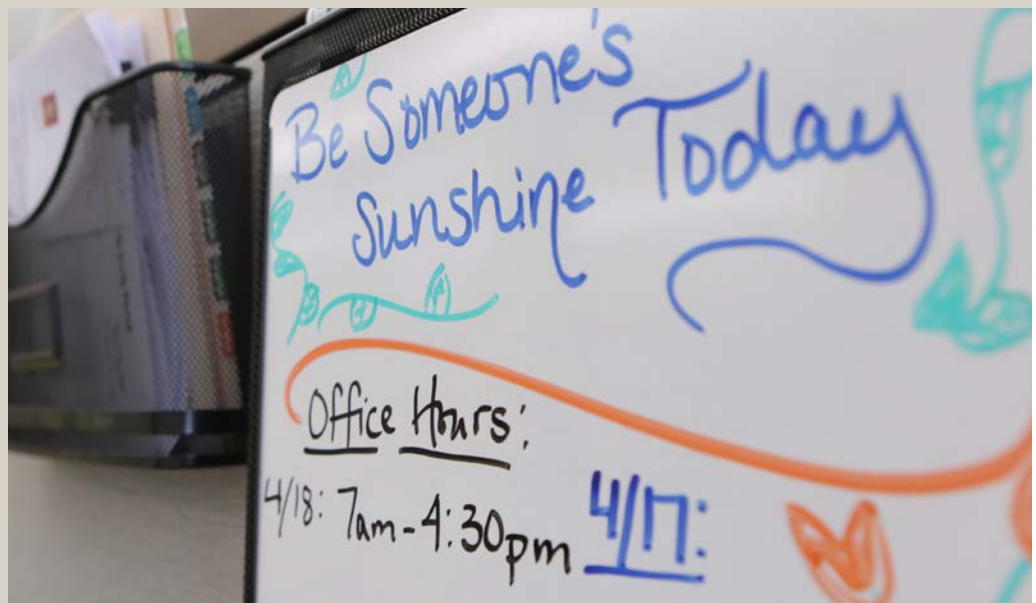 Be Someone's
Sunshine Today
Office Hours:
4/18: 7am-4:30pm 4/17: